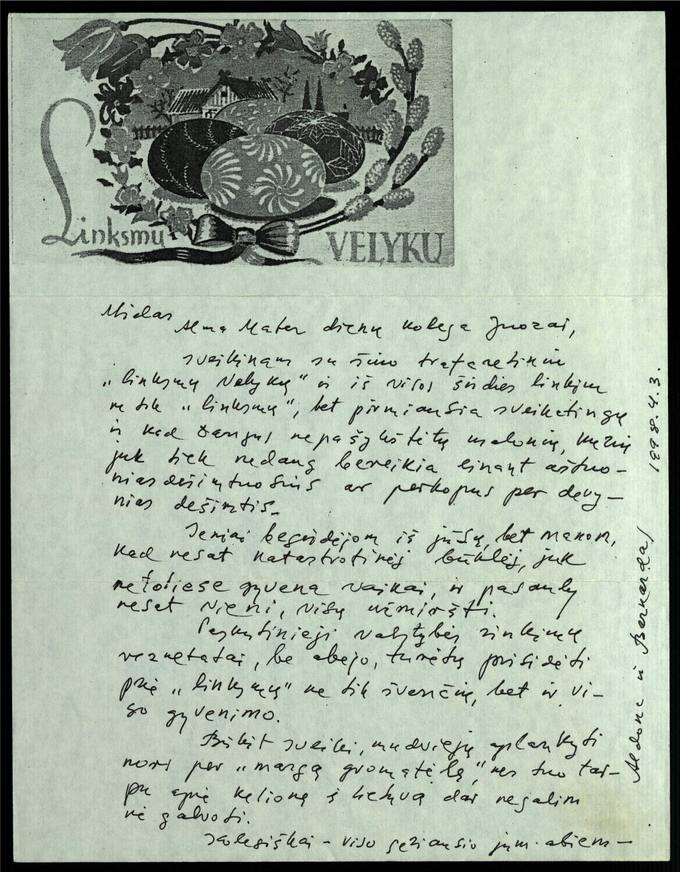 Linksmų VELYKŲ
Mielas
Alma Mater dienų kolega Juozai,
sveikinam su šiuo trafaretiniu
„linksmų Velykų" ir iš visos širdies linkim
ne tik „linksmų", bet pirmiausia sveikatingų
ir kad Dangus nepašykštėtų malonių, kurių
juk tiek nedaug bereikia einant aštuo-
niasdešimtuosius ar perkopus per devy-
nias dešimtis.
Seniai begirdėjom iš jūsų, bet manom,
kad nesat katastrofinėj būklėj, juk
netoliese gyvena vaikai, ir pasauly
nesat vieni, visų užmiršti.
Paskutinieji valstybės rinkimų
rezultatai, be abejo, turėtų prisidėti
prie „linksmų" ne tik švenčių, bet ir vi-
so gyvenimo.
Būkit sveiki, mudviejų aplankyti
nors per „margą gromatėlę", nes tuo tar-
pu apie kelionę į Lietuvą dar negalim
nė galvoti.
Kolegiškai – viso geriausio jum abiem –
Aldona ir Bernardas
1998.4.3.